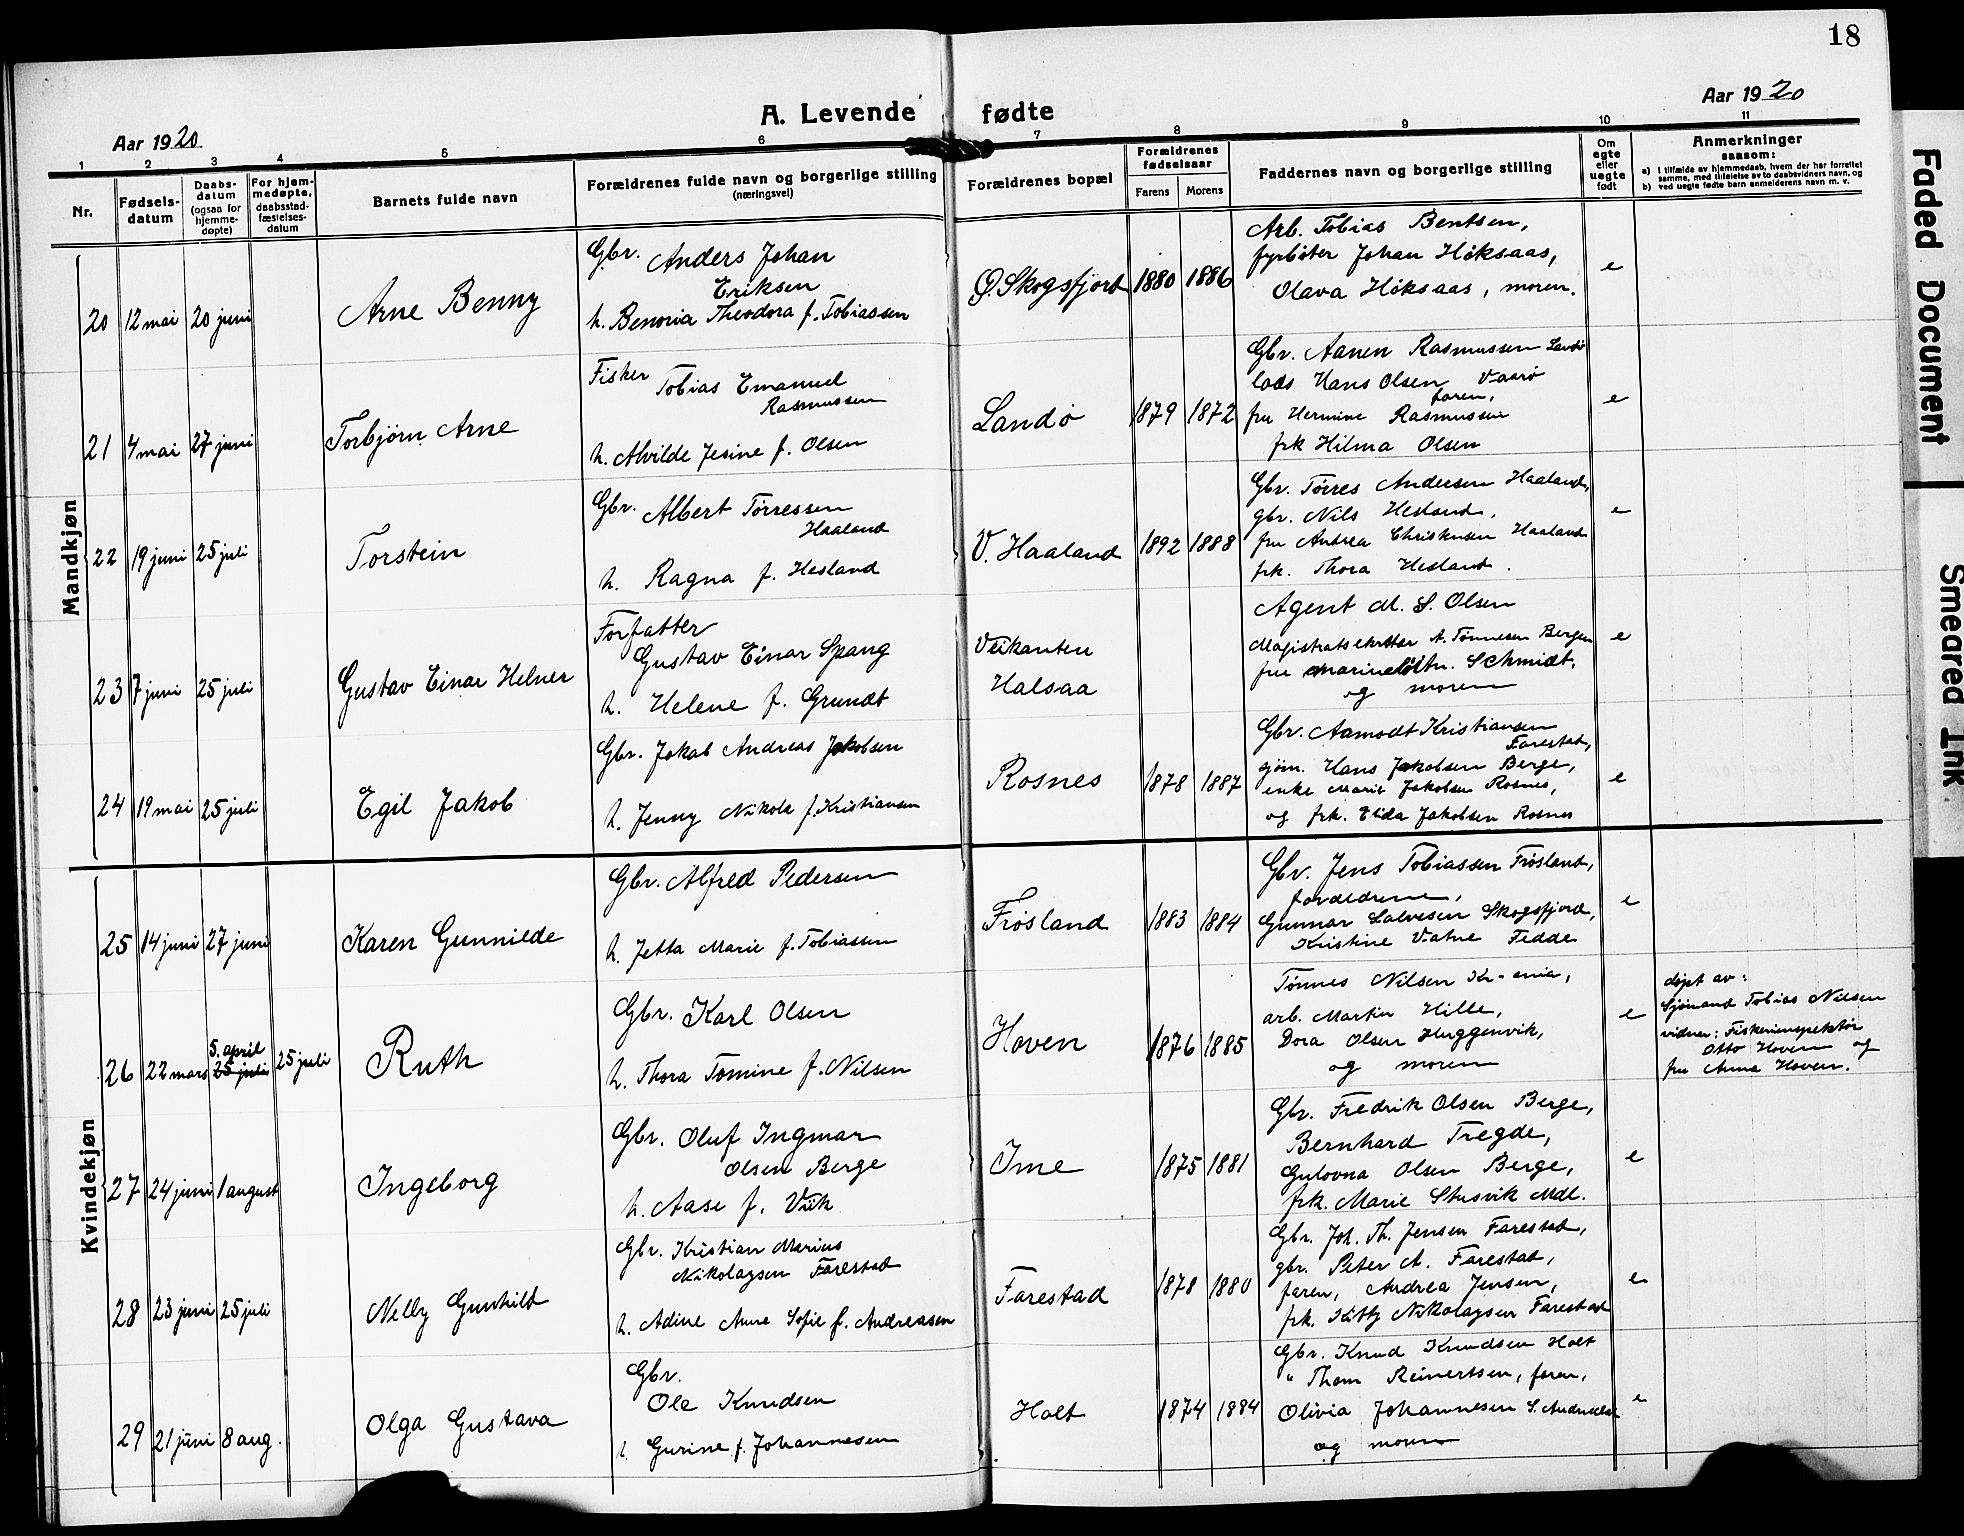 18
Aar 1920
A. Levende fødte
Aar 1920
1 2 3 4 5 6 7 8 9 10 11
Nr.
Fødsels-
datum
Daabs-
datum
(ogsaa for
hjemme-
døpte)
For hjem-
medøpte,
daabsstad-
fæstelses-
datum
Barnets fulde navn
Forældrenes fulde navn og borgerlige stilling
(næringsvei)
Forældrenes bopæl
Forældrenes
fødselsaar
Farens Morens
Faddernes navn og borgerlige stilling
Om
egte
eller
uegte
født
Anmerkninger
saasom:
a) i tilfælde av hjemmedaab, hvem der har forrettet
samme, med tilføielse av to daabsvidners navn, og
b) ved uegte fødte barn anmelderens navn m. v.
Mandkjøn
20 12 mai 20 juni
Arne Benny
Gbr. Anders Johan
Eriksen
h. Benoria Theodora f. Tobiassen
Ø. Skogsfjord 1880 1886
Arb. Tobias Bentsen,
fyrbøter Johan Høksaas,
Olava Høksaas, moren.
e
21 4 mai 27 juni
Torbjørn Arne
Fisker Tobias Emanuel
Rasmussen
h. Alvilde Jesine f. Olsen
Landø 1879 1872
Gbr. Aanen Rasmussen Landø
lods Hans Olsen Vaarø
faren,
fru Hermine Rasmussen
frk Hilma Olsen
e
22 19 juni 25 juli
Torstein
Gbr. Albert Tørressen
Haaland
h. Ragna f. Hesland
V. Haaland 1892 1888
Gbr. Tørres Andersen Haaland,
gbr. Nils Hesland,
fru Andrea Christensen Haaland
frk. Thora Hesland.
e
23 7 juni 25 juli
Gustav Einar Helner
Forfatter
Gustav Einar Spang
h. Helene f. Grundt
Veikanten
Halsaa
Agent M. S. Olsen
Magistratsekretær A. Tønnesen Bergen
fru marineløitn. Schmidt,
og moren
e
24 19 mai 25 juli
Egil Jakob
Gbr. Jakob Andreas Jakobsen
h. Jenny Nikola f. Kristiansen
Rosnes 1878 1887
Gbr. Aamodt Kristiansen
Farestad,
sjøm. Hans Jakobsen Berge,
enke Marie Jakobsen Rosnes,
og frk. Elida Jakobsen Rosnes
e
Kvindekjøn
25 14 juni 27 juni
Karen Gunnilde
Gbr. Alfred Pedersen
h. Jetta Marie f. Tobiassen
Frøsland 1883 1884
Gbr. Jens Tobiassen Frøsland,
forældrene,
Gunnar Salvesen Skogsfjord,
Kristine Vatne Fedde
e
26 22 mars 5. april 25 juli 25 juli
Ruth
Gbr. Karl Olsen
h. Thora Tomine f. Nilsen
Hoven 1876 1885
Tønnes Nilsen Kr-ania,
arb. Martin Hille,
Dora Olsen Huggenvik,
og moren
e
døpt av:
Sjømand Tobias Nilsen
vidner: Fiskeriinspektør
Otto Hoven og
fru Anna Hoven.
27 24 juni 1 august
Ingeborg
Gbr. Oluf Ingmar
Olsen Berge
h. Aase f. Viik
Ime 1875 1881
Gbr. Fredrik Olsen Berge,
Bernhard Tregde,
Gulovna Olsen Berge,
frk. Marie Stusvik Mdl.
e
28 23 juni 25 juli
Nelly Gunhild
Gbr. Kristian Marius
Nikolaysen Farestad
h. Adine Anne Sofie f. Andreassen
Farestad 1878 1880
Gbr. Joh. Th. Jensen Farestad,
gbr. Peter A. Farestad,
faren, Andrea Jensen,
frk. Kitty Nikolaysen Farestad
e
29 21 juni 8 aug.
Olga Gustava
Gbr.
Ole Knudsen
h. Gurine f. Johannesen
Holt 1874 1884
Gbr. Knud Knudsen Holt
" Thom Reinertsen, faren,
Olivia Johannesen S. Audnedal
og moren
e
Faded Document
Smeared Ink